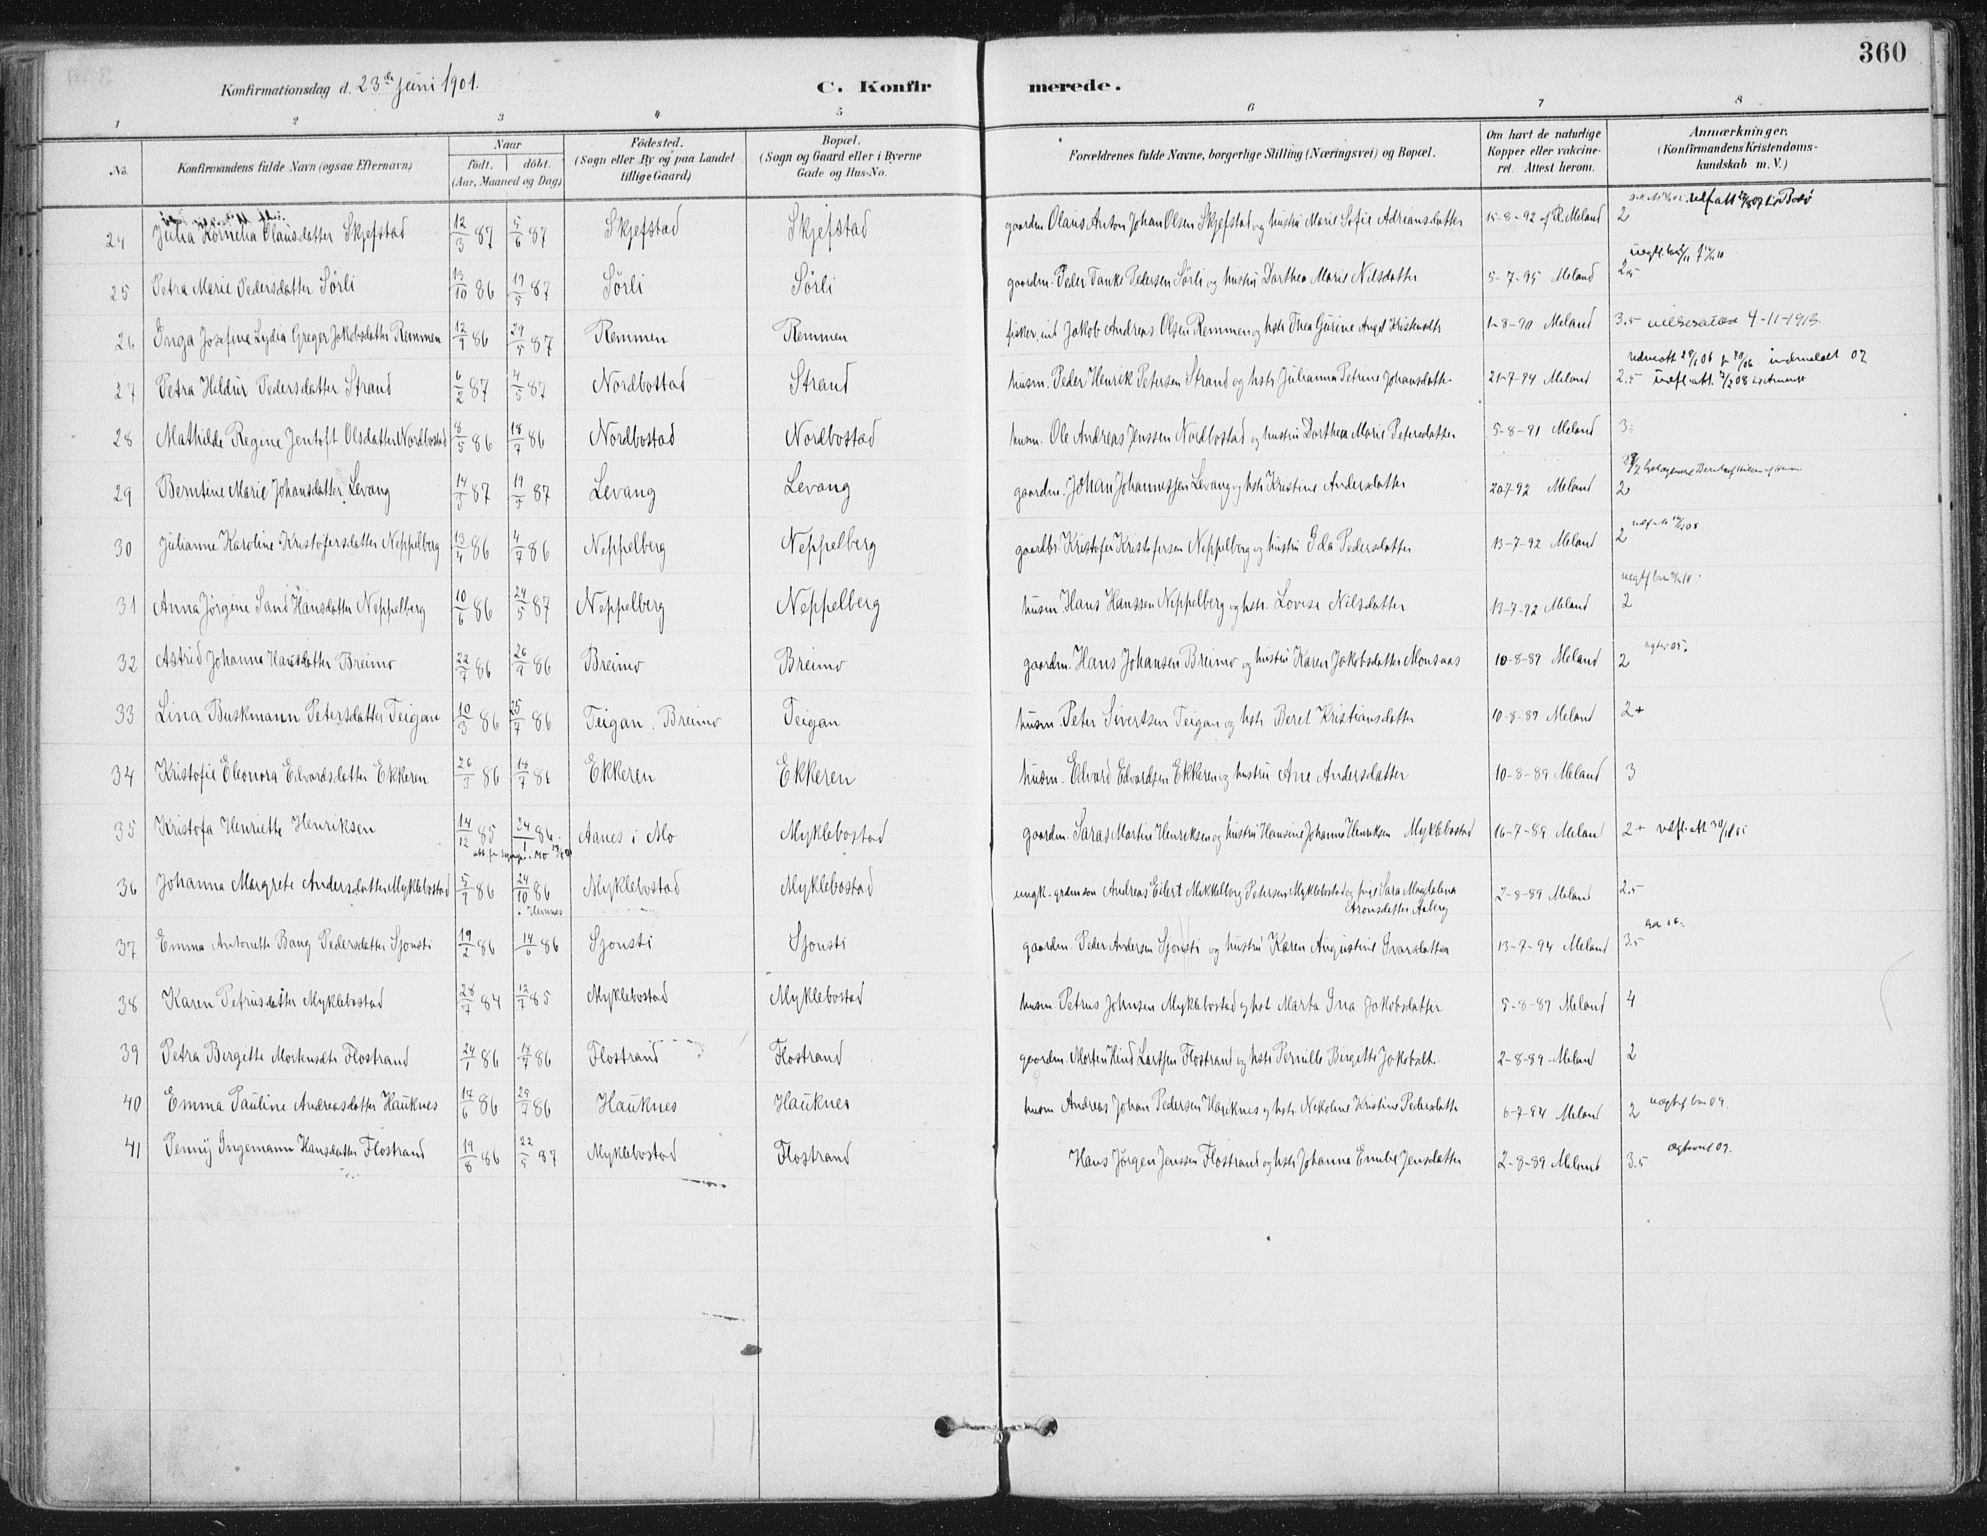 360
Konfirmationsdag d. 23de Juni 1901.
C. Konfirmerede.
1 2 3 4 5 6 7 8
No. Konfirmandens fulde Navn (ogsaa Efternavn) Naar födt. döbt. (Aar, Maaned og Dag) Födested. (Sogn eller By og paa Landet tillige Gaard) Bopæl. (Sogn og Gaard eller i Byerne Gade og Hus-No. Forældrenes fulde Navne, borgerlige Stilling (Næringsvei) og Bopæl. Om havt de naturlige Kopper eller vakcineret. Attest herom. Anmærkninger. (Konfirmandens Kristendomskundskab m. V.)
24 Julia Kornelia Olausdatter Skjefstad 12/3 87 5/6 87 Skjefstad Skjefstad gaardm. Olaus Anton Johan Olsen Skjefstad og hustru Marie Sofie Adriansdatter 15-8-92 af R. Meland 2
25 Petra Marie Pedersdatter Sörli 13/10 86 19/5 87 Sörli Sörli gaardm. Peder Tanke Pedersen Sörli og hustru Dorthea Marie Nilsdatter 5-7-95 Meland 2.5
26 Inga Josefine Lydia Greger Jakobsdatter Remmen 12/1 86 29/5 87 Remmen Remmen fisker, Jakob Andreas Olsen Remmen og hstr Thea Gurine Angel Kristensdtr 1-8-90 Meland 3.5 4-11-1913.
27 Petra Hildur Pedersdatter Strand 6/2 87 4/5 87 Nordbostad Strand husm. Peder Henrik Petersen Strand og hstr Julianna Petrine Johansdatter 21-7-94 Meland 2.5
28 Mathilde Regine Jentoft Olsdatter Nordbostad 8/5 86 18/7 86 Nordbostad Nordbostad husm. Ole Andreas Jenssen Nordbostad og hustru Dorthea Marie Petersdatter 5-8-91 Meland 3
29 Berntine Marie Johansdatter Levang 14/3 87 19/5 87 Levang Levang gaardm. Johan Johannessen Levang og hstr Kristine Andersdatter 20-7-92 Meland 2
30 Julianne Karoline Kristofersdatter Neppelberg 13/4 86 4/7 86 Neppelberg Neppelberg gaardbr. Kristofer Kristofersen Neppelberg og hustru Ida Pedersdatter 13-7-92 Meland 2
31 Anna Jörgine Sand Hansdatter Neppelberg 10/6 86 24/5 87 Neppelberg Neppelberg husm Hans Hanssen Neppelberg og hstr. Lovise Nilsdatter 13-7-92 Meland 2
32 Astrid Johanna Hansdatter Breimo 22/7 86 26/9 86 Breimo Breimo gaardm. Hans Johansen Breimo og hustru Karen Jakobsdatter Monsaas 10-8-89 Meland 2
33 Lina Buskmann Petersdatter Teigan 10/3 86 25/7 86 Teigan. Breimo Teigan husm. Peter Sivertsen Teigan og hstr Beret Kristiansdatter 10-8-89 Meland 2+
34 Kristofie Eleonora Edvardsdatter Ekkeren 26/3 86 18/7 86 Ekkeren Ekkeren husm. Edvard Edvardsen Ekkeren og hustru Ane Andersdatter 10-8-89 Meland 3
35 Kristofa Henriette Henriksen 14/12 85 24/1 86 Aanes i Mo Myklebostad gaardm. Saras Martin Henriksen og hustru Hansine Johanna Henriksen Myklebostad 16-7-89 Meland 2+
36 Johanna Margrete Andersdatter Myklebostad 5/9 86 24/10 86 i Hemnes Myklebostad Myklebostad ungk. Andreas Eilert Mikkelborg Petersen Myklebostad og pige Sara Magdalena Aronsdatter Aaberg 2-8-89 Meland 2.5
37 Emma Antonette Bang Pedersdatter Sjonsti 19/2 86 14/6 86 Sjonsti Sjonsti gaardm. Peder Andersen Sjonsti og hustru Karen Augustine Ivarsdatter 13-7-94 Meland 3.5
38 Karen Petrusdatter Myklebostad 28/7 84 12/7 85 Myklebostad Myklebostad husm Petrus Johnsen Myklebostad og hst Marta Ina Jakobsdatter 5-8-89 Meland 4
39 Petra Birgitte Mortensdtr Flostrand 24/1 86 18/7 86 Flostrand Flostrand gaardm. Morten Hind Larssen Flostrand og hstr Pernille Birgitte Jakobsdt. 2-8-89 Meland 2
40 Emma Pauline Andreasdatter Hauknes 17/6 86 25/7 86 Hauknes Hauknes husm Andreas Johan Pedersen Hauknes og hstr. Nikoline Kristine Pedersdatter 6-7-94 Meland 2
41 Penny Ingemann Hansdatter Flostrand 19/8 86 22/5 87 Myklebostad Flostrand Hans Jörgen Jenssen Flostrand og hstr Johanna Emilie Jensdatter 2-8-89 Meland 3.5